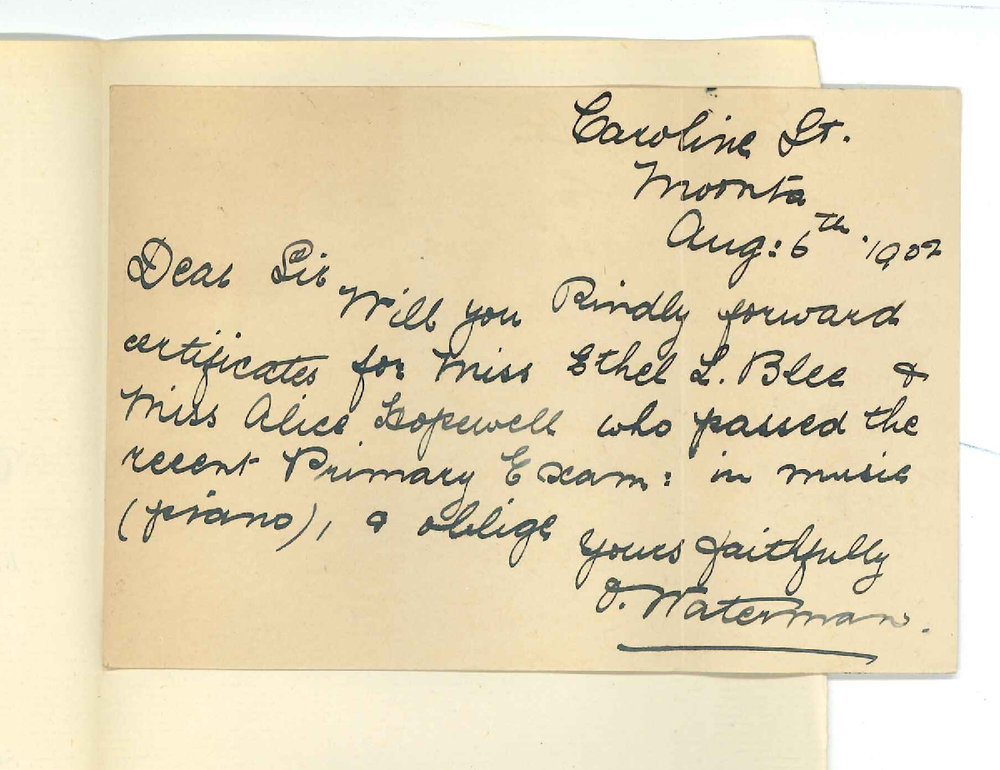 Caroline St.
Moonta
Aug: 6th 1902
Dear Sir
Will you Kindly forward
certificates for Miss Ethel L. Blee &
Miss Alice Hopewell who passed the
recent Primary Exam: in music
(piano), & oblige
Yours faithfully
J. Waterman.